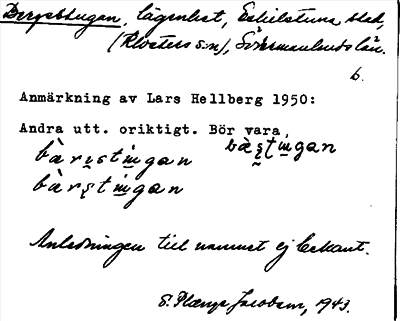 Bergsstugan, lägenhet, Eskilstuna stad,
(Klosters s:n), Södermanlands län.
b.
Anmärkning av Lars Hellberg 1950:
Andra utt. oriktigt. Bör vara
bàrs̥tiṇgan bàs̥tiṇgan
bàrs̥tiṇgan
Anledningen till namnet ej bekant.
S. Jacobson, 1943.